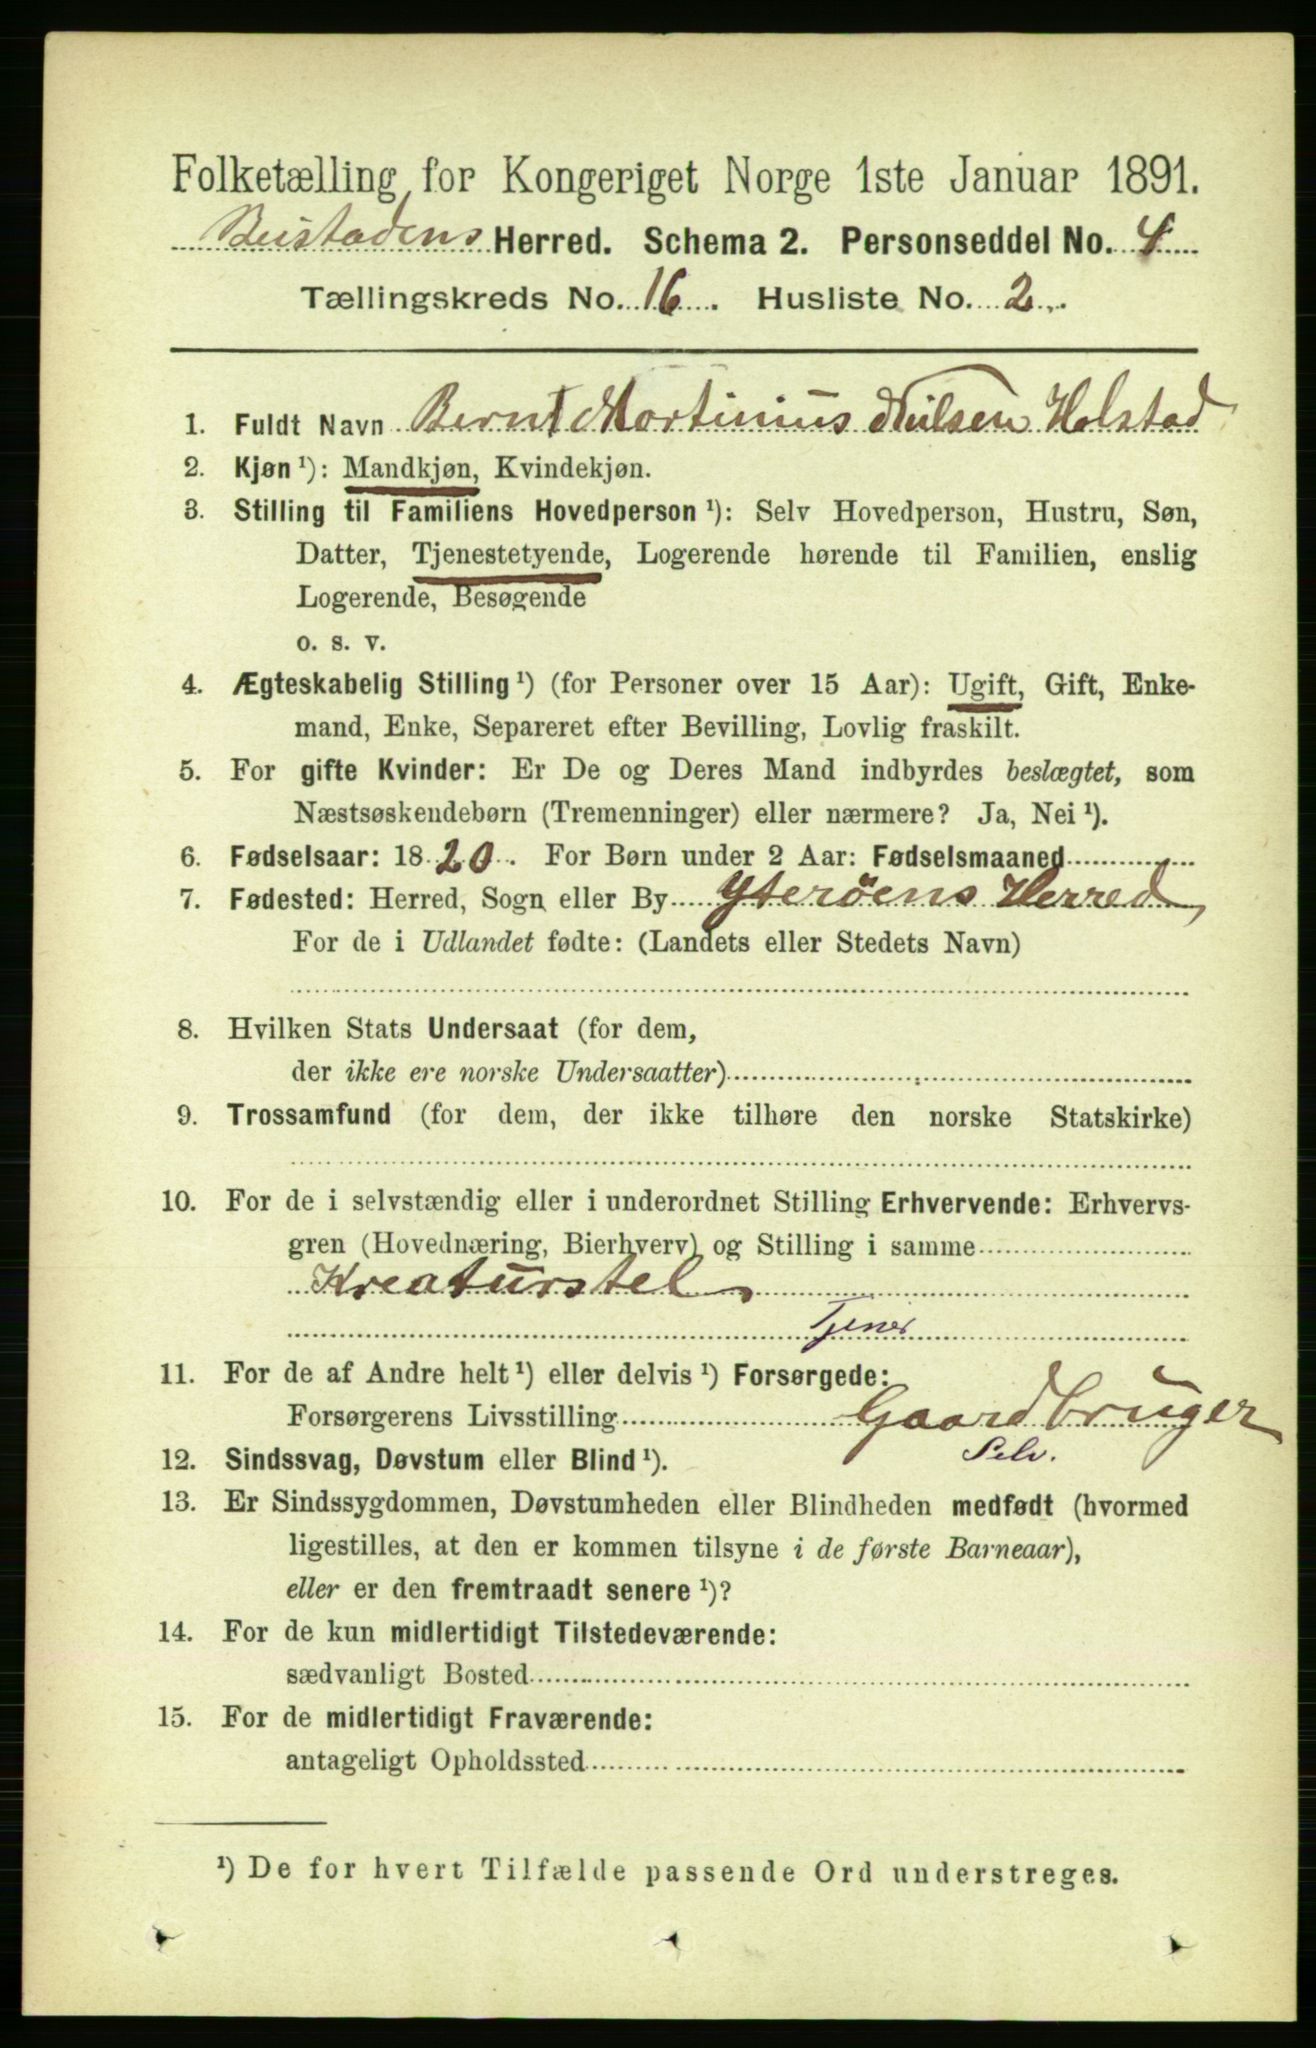 Folketælling for Kongeriget Norge 1ste Januar 1891.
Beistadens Herred. Schema 2. Personseddel No. 4
Tællingskreds No. 16. Husliste No. 2.
1. Fuldt Navn Bernt Martinius Nielsen Holstad
2. Kjøn ¹): Mandkjøn, Kvindekjøn.
3. Stilling til Familiens Hovedperson ¹): Selv Hovedperson, Hustru, Søn,
Datter, Tjenestetyende, Logerende hørende til Familien, enslig
Logerende, Besøgende
o. s. v.
4. Ægteskabelig Stilling ¹) (for Personer over 15 Aar): Ugift, Gift, Enke-
mand, Enke, Separeret efter Bevilling, Lovlig fraskilt.
5. For gifte Kvinder: Er De og Deres Mand indbyrdes beslægtet, som
Næstsøskendebørn (Tremenninger) eller nærmere? Ja, Nei ¹).
6. Fødselsaar: 1820. For Børn under 2 Aar: Fødselsmaaned
7. Fødested: Herred, Sogn eller By Yterøens Herred
For de i Udlandet fødte: (Landets eller Stedets Navn)
8. Hvilken Stats Undersaat (for dem,
der ikke ere norske Undersaatter)
9. Trossamfund (for dem, der ikke tilhøre den norske Statskirke)
10. For de i selvstændig eller i underordnet Stilling Erhvervende: Erhvervs-
gren (Hovednæring, Bierhverv) og Stilling i samme
Kreaturstel
Tjener
11. For de af Andre helt ¹) eller delvis ¹) Forsørgede:
Forsørgerens Livsstilling Gaardbruger
Selv.
12. Sindssvag, Døvstum eller Blind ¹).
13. Er Sindssygdommen, Døvstumheden eller Blindheden medfødt (hvormed
ligestilles, at den er kommen tilsyne i de første Barneaar),
eller er den fremtraadt senere ¹)?
14. For de kun midlertidigt Tilstedeværende:
sædvanligt Bosted
15. For de midlertidigt Fraværende:
antageligt Opholdssted
¹) De for hvert Tilfælde passende Ord understreges.